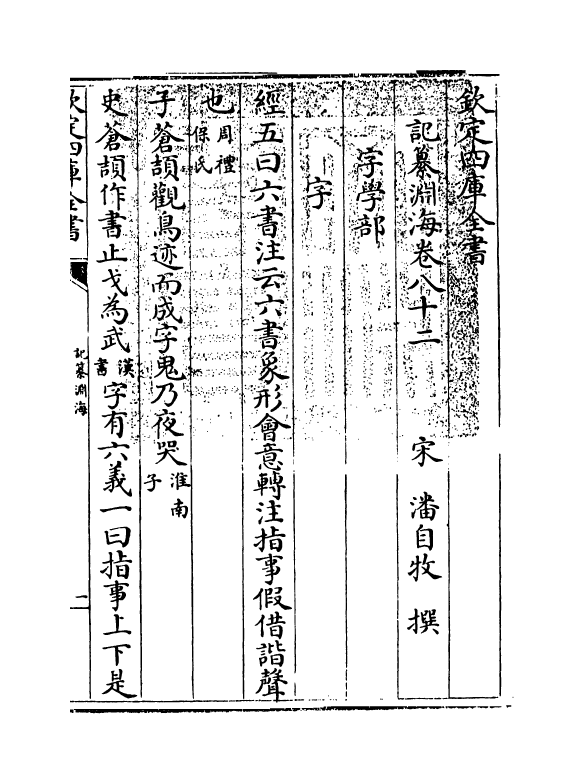 欽定四庫全書
記纂淵海卷八十二
宋 潘自牧 撰
字學部
字
經五曰六書注云六書象形會意轉注指事假借諧聲
也周禮保氏
子蒼頡觀鳥迹而成字鬼乃夜哭淮南子
史蒼頡作書止戈為武漢書字有六義一曰指事上下是
欽定四庫全書
記纂淵海
二